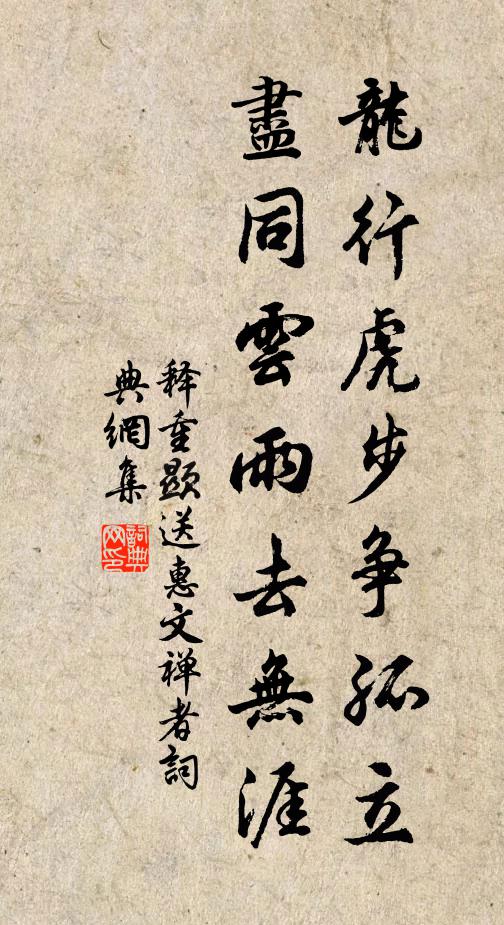 龍行虎步争孤立
盡同雲雨去無涯
释重顯送惠文禅者詞
典網集
詞典
网印